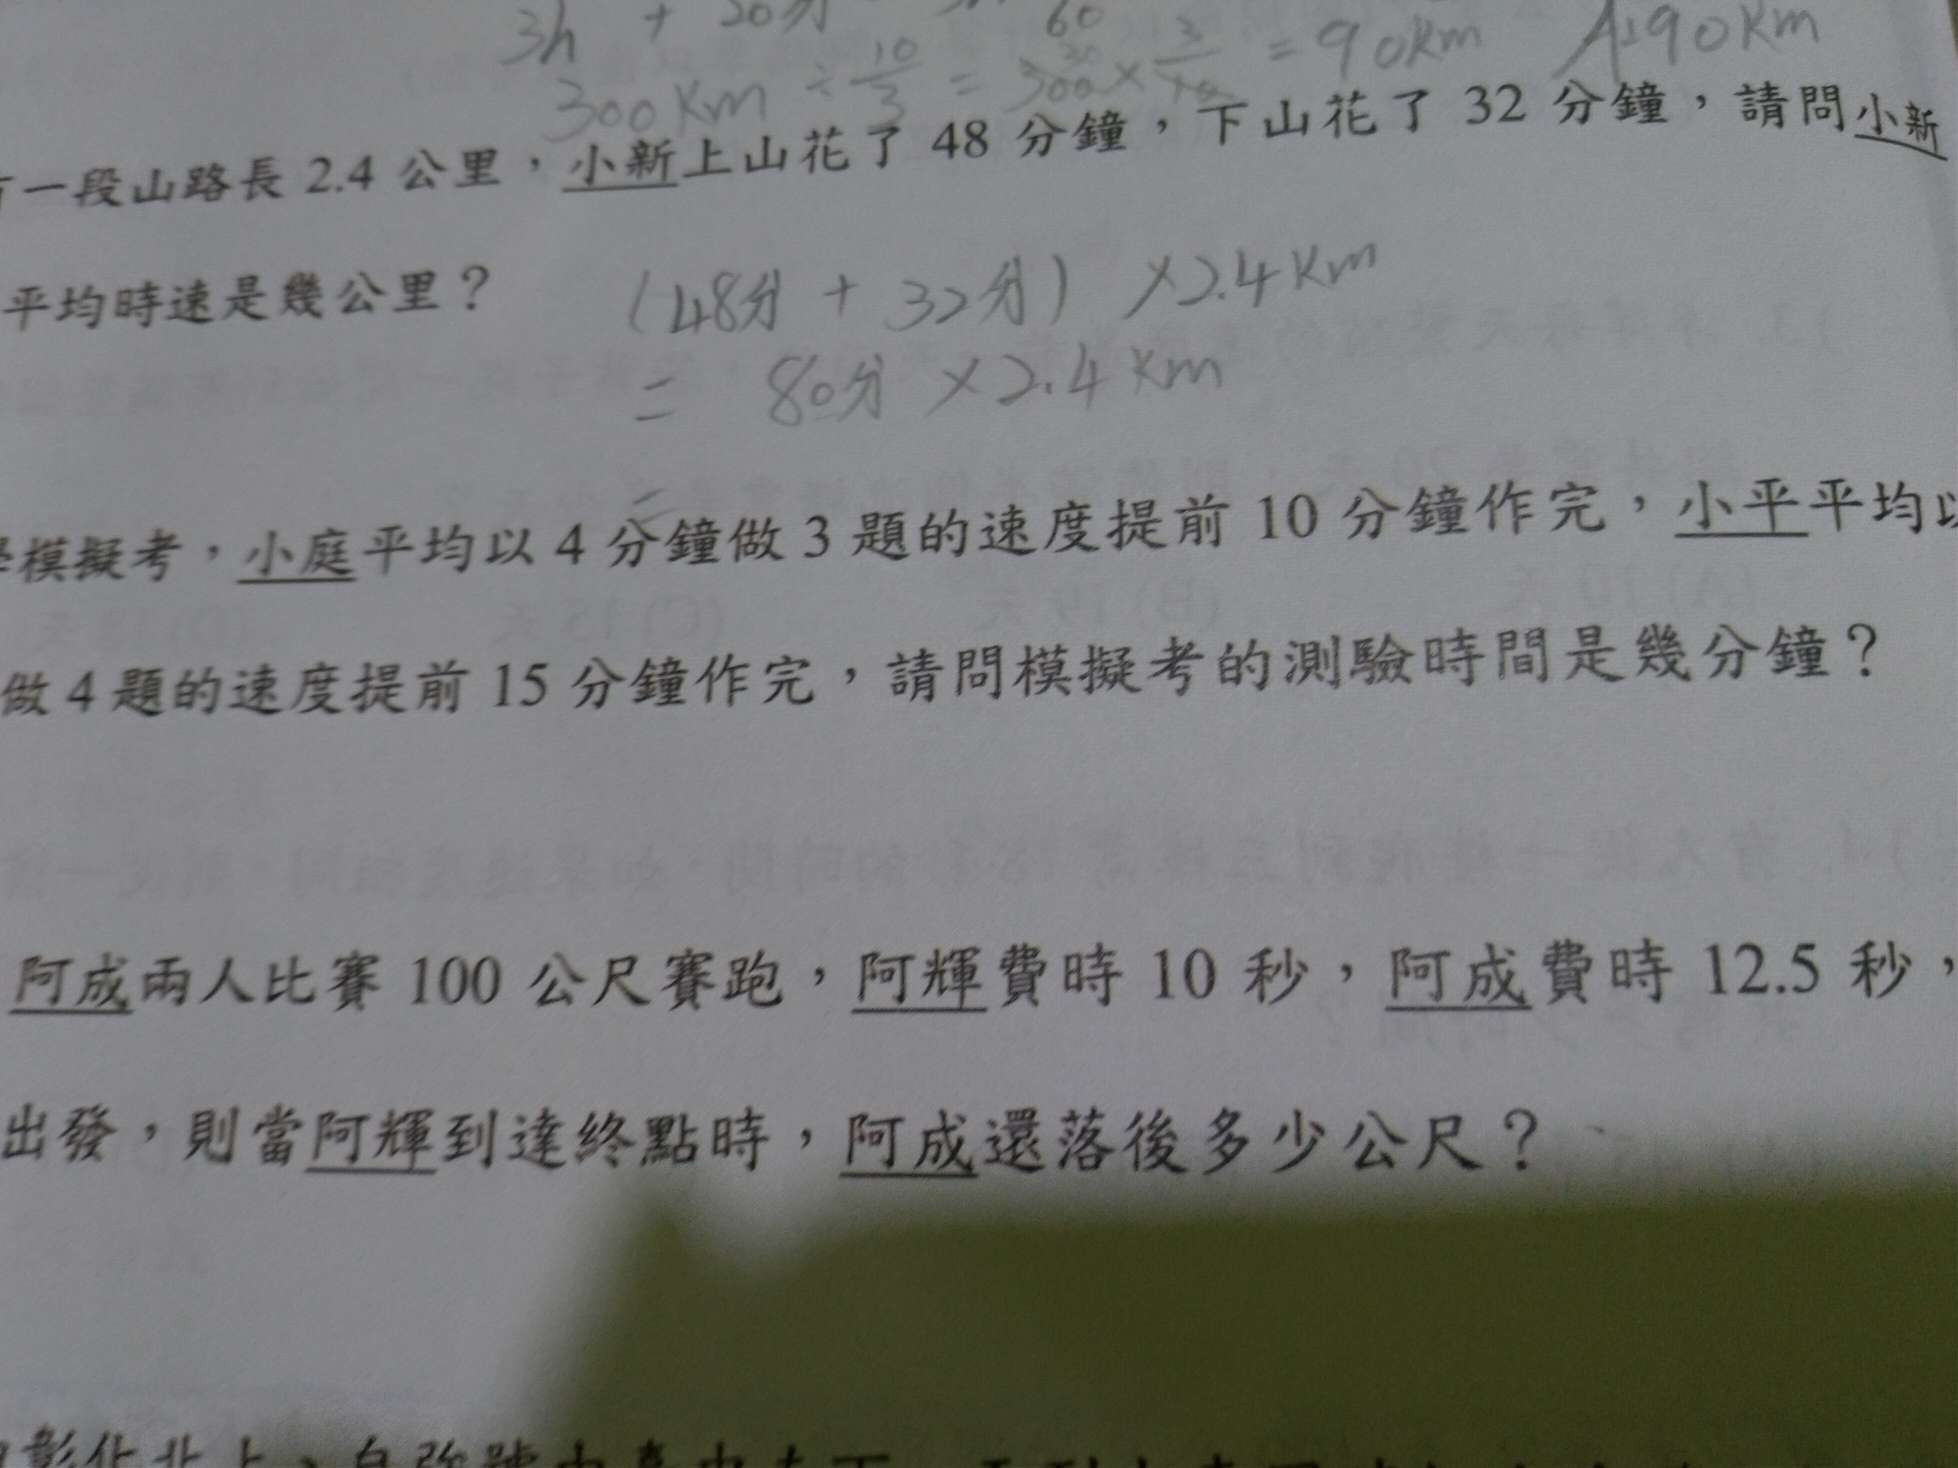 3h + 20分 60
300Km ÷ 10/3 = 300 × 3/10 = 90Km A:90Km
一段山路長 2.4 公里，小新上山花了 48 分鐘，下山花了 32 分鐘，請問小新
平均時速是幾公里？ (48分 + 32分) ×2.4Km
= 80分 ×2.4Km
=
模擬考，小庭平均以 4 分鐘做 3 題的速度提前 10 分鐘作完，小平平均以
做 4 題的速度提前 15 分鐘作完，請問模擬考的測驗時間是幾分鐘？
阿成兩人比賽 100 公尺賽跑，阿輝費時 10 秒，阿成費時 12.5 秒，
出發，則當阿輝到達終點時，阿成還落後多少公尺？
彰化北上、自強號